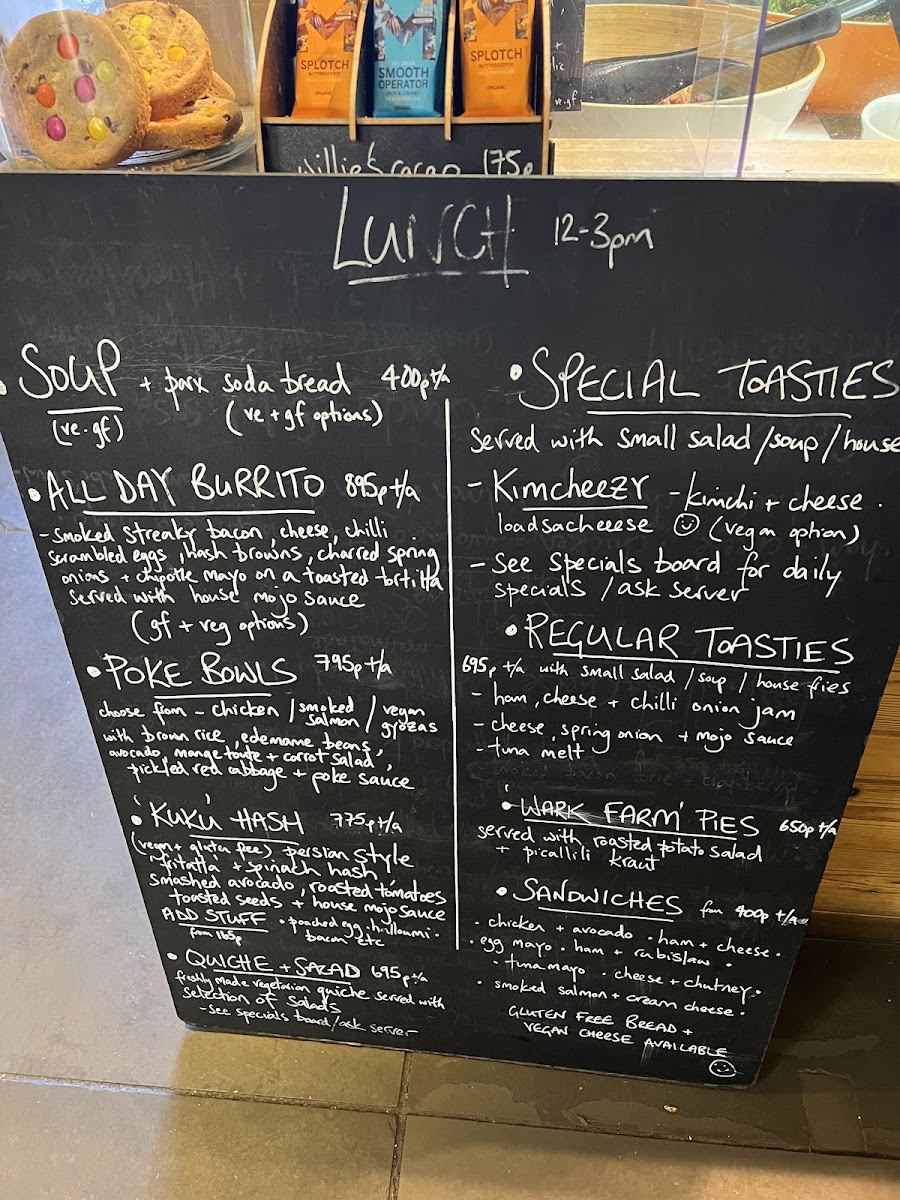 SPLOTCH
BUTTERSCOTCH
ORGANIC
SMOOTH
OPERATOR
ORGANIC
SPLOTCH
BUTTERSCOTCH
ORGANIC
ve.gf
Willie's cacao 175p
LUNCH 12-3pm
• SOUP + parx soda bread 400p t/a
(ve.gf) (ve + gf options)
• ALL DAY BURRITO 895p t/a
- smoked streaky bacon, cheese, chilli
scrambled eggs, hash browns, charred spring
onions + chipotle mayo on a toasted tortilla
served with house mojo sauce
(gf + veg options)
• POKE BOWLS 795p t/a
choose from - chicken / smoked salmon / vegan gyozas
with brown rice, edemame beans,
avocado, mange toute + carrot salad,
pickled red cabbage + poke sauce
• 'KUKU' HASH 775p t/a
(vegan + gluten free) persian style
fritatta + spinach hash
smashed avocado, roasted tomatoes
toasted seeds + house mojo sauce
ADD STUFF • poached egg, halloumi •
from 165p bacon etc
• QUICHE + SALAD 695p t/a
freshly made vegetarian quiche served with
selection of salads
- see specials board/ask server
• SPECIAL TOASTIES
served with small salad/soup/house
- KIMCHEEZY - kimchi + cheese .
loadsacheeese ☺ (vegan option)
- see specials board for daily
specials / ask server
• REGULAR TOASTIES
695p t/a with small salad / soup / house fries
- ham, cheese + chilli onion jam
- cheese, spring onion + mojo sauce
- tuna melt
• 'WARK FARM' PIES 650p t/a
served with roasted potato salad
+ picallili kraut
• SANDWICHES from 400p t/a
• chicken + avocado • ham + cheese •
• egg mayo • ham + rubislaw •
• tuna mayo • cheese + chutney •
• smoked salmon + cream cheese •
GLUTEN FREE BREAD +
VEGAN CHEESE AVAILABLE
☺